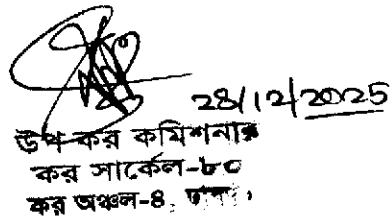 28/12/2025
উপ কর কমিশনার
কর সার্কেল-৮০
কর অঞ্চল-৪, ঢাকা।